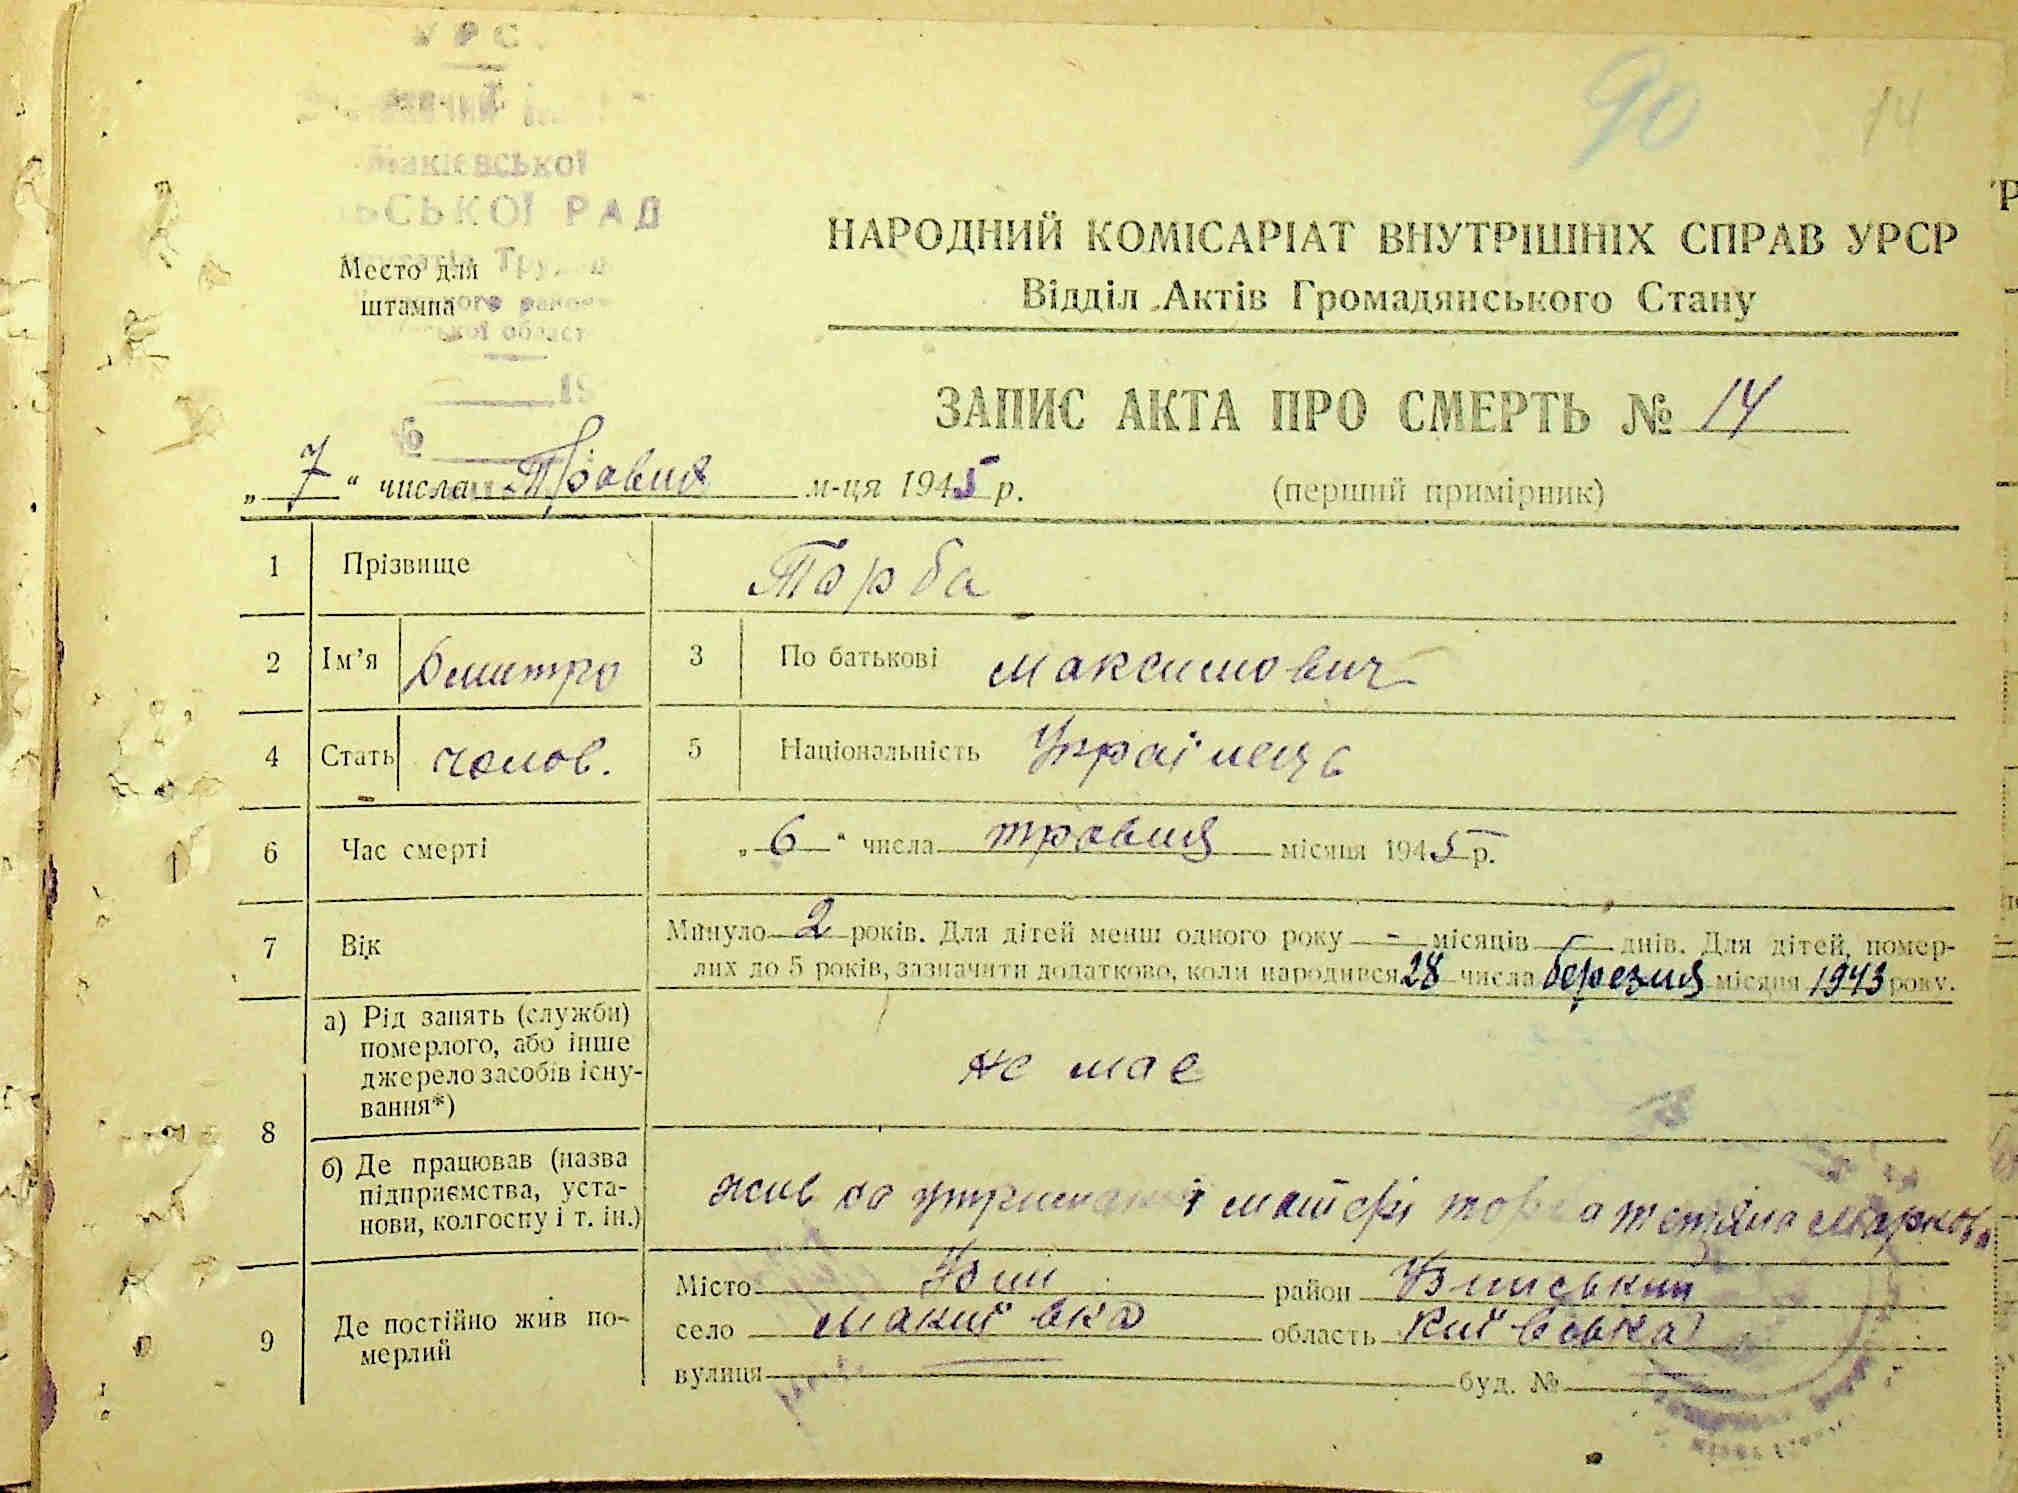 УРС
Макіевської
СЬКОЇ РАД
Место для
штампа
90
14
НАРОДНИЙ КОМІСАРІАТ ВНУТРІШНІХ СПРАВ УРСР
Відділ Актів Громадянського Стану
ЗАПИС АКТА ПРО СМЕРТЬ № 14
„ 7 “ числа Травня м-ця 1945 р.
(перший примірник)
1 Прізвище Торба
2 Ім’я Дмитро 3 По батькові Максимович
4 Стать чолов. 5 Національність Українець
6 Час смерті „ 6 “ числа травня місяця 1945 р.
7 Вік Минуло 2 років. Для дітей менш одного року - місяців - днів. Для дітей, помер-
лих до 5 років, зазначити додатково, коли народився 28 числа березня місяця 1943 року.
8 а) Рід занять (служби)
померлого, або інше
джерело засобів існу-
вання*)
не має
б) Де працював (назва
підприємства, уста-
нови, колгоспу і т. ін.)
жив на утриманні матері Торба Тетяна Маркова
9 Де постійно жив по-
мерлий
Місто район
село Макиївка область Київська
вулиця буд. №